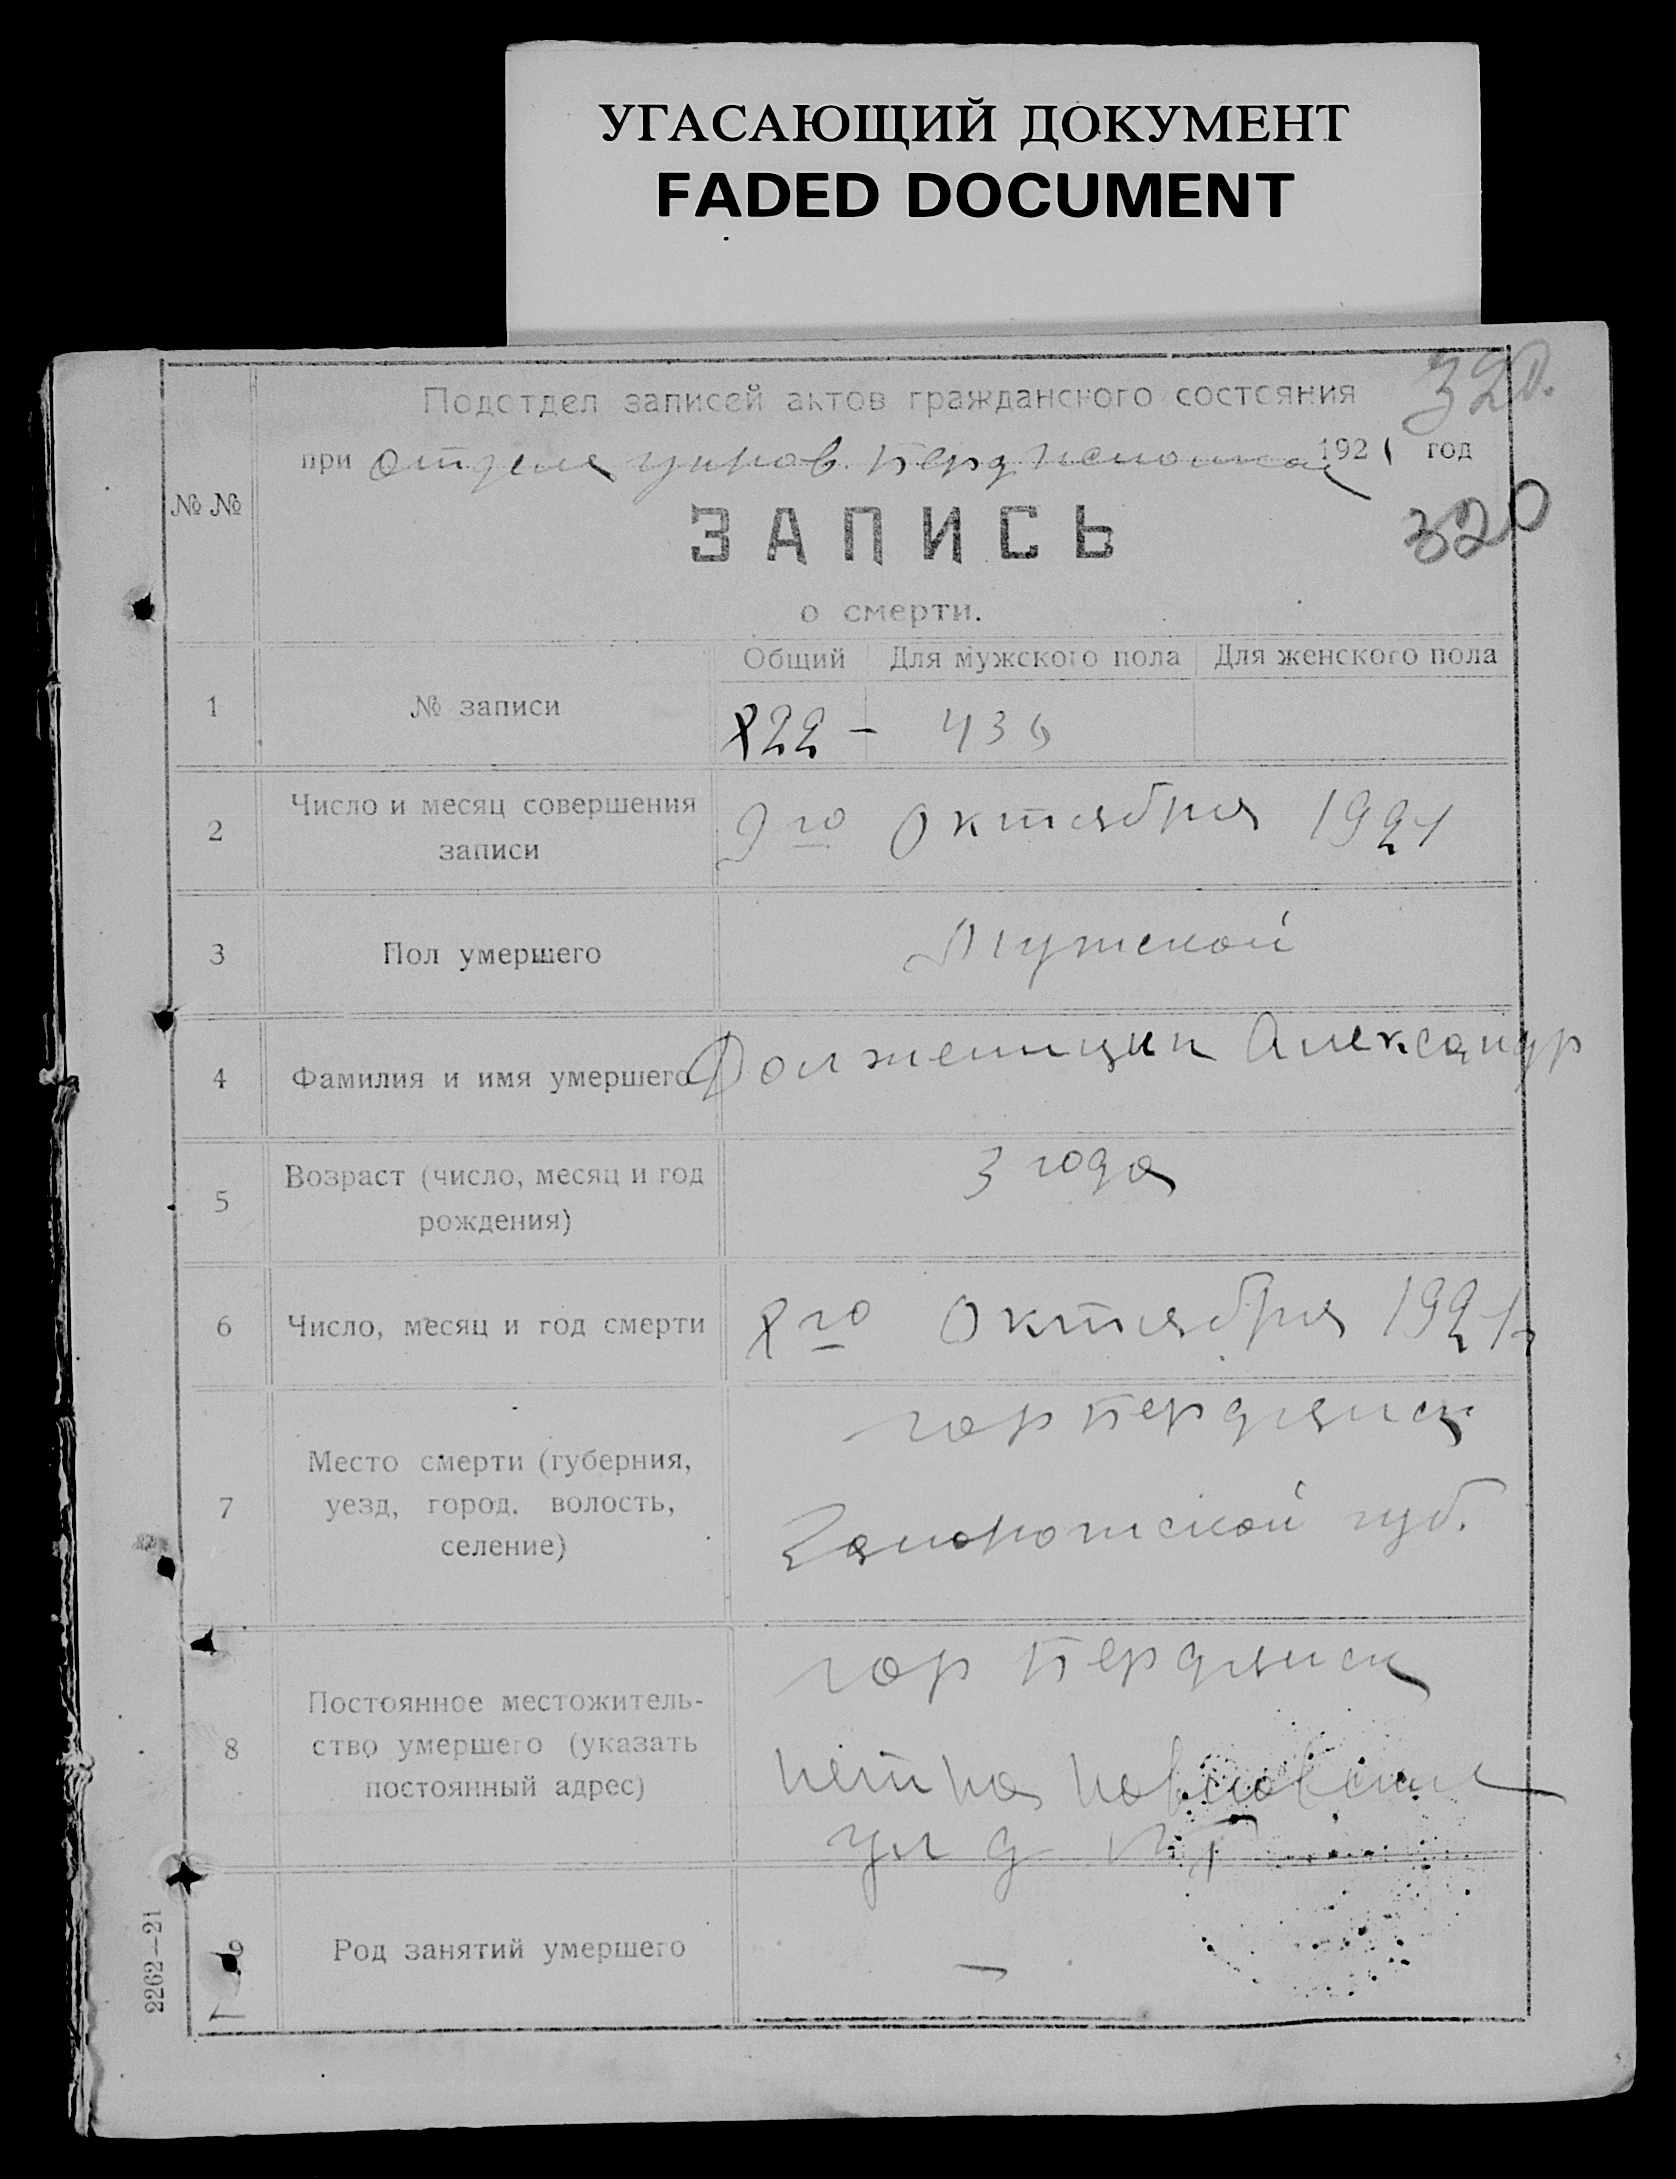 УГАСАЮЩИЙ ДОКУМЕНТ
FADED DOCUMENT
320.
Подотдел записей актов гражданского состояния
при отделе управ. Берд. 1921 год
№ №
ЗАПИСЬ
320
о смерти.
Общий Для мужского пола Для женского пола
1 № записи 822 – 436
2 Число и месяц совершения
записи
9го Октября 1921
3 Пол умершего Мужской
4 Фамилия и имя умершего Долженицин Александр
5 Возраст (число, месяц и год
рождения)
3 года
6 Число, месяц и год смерти 8го Октября 1921 г
7 Место смерти (губерния,
уезд, город, волость,
селение)
гор Бердянск
Запорожской губ.
8 Постоянное местожитель-
ство умершего (указать
постоянный адрес)
гор Бердянск
Петро Павловская
ул д №
9 Род занятий умершего –
2262—21